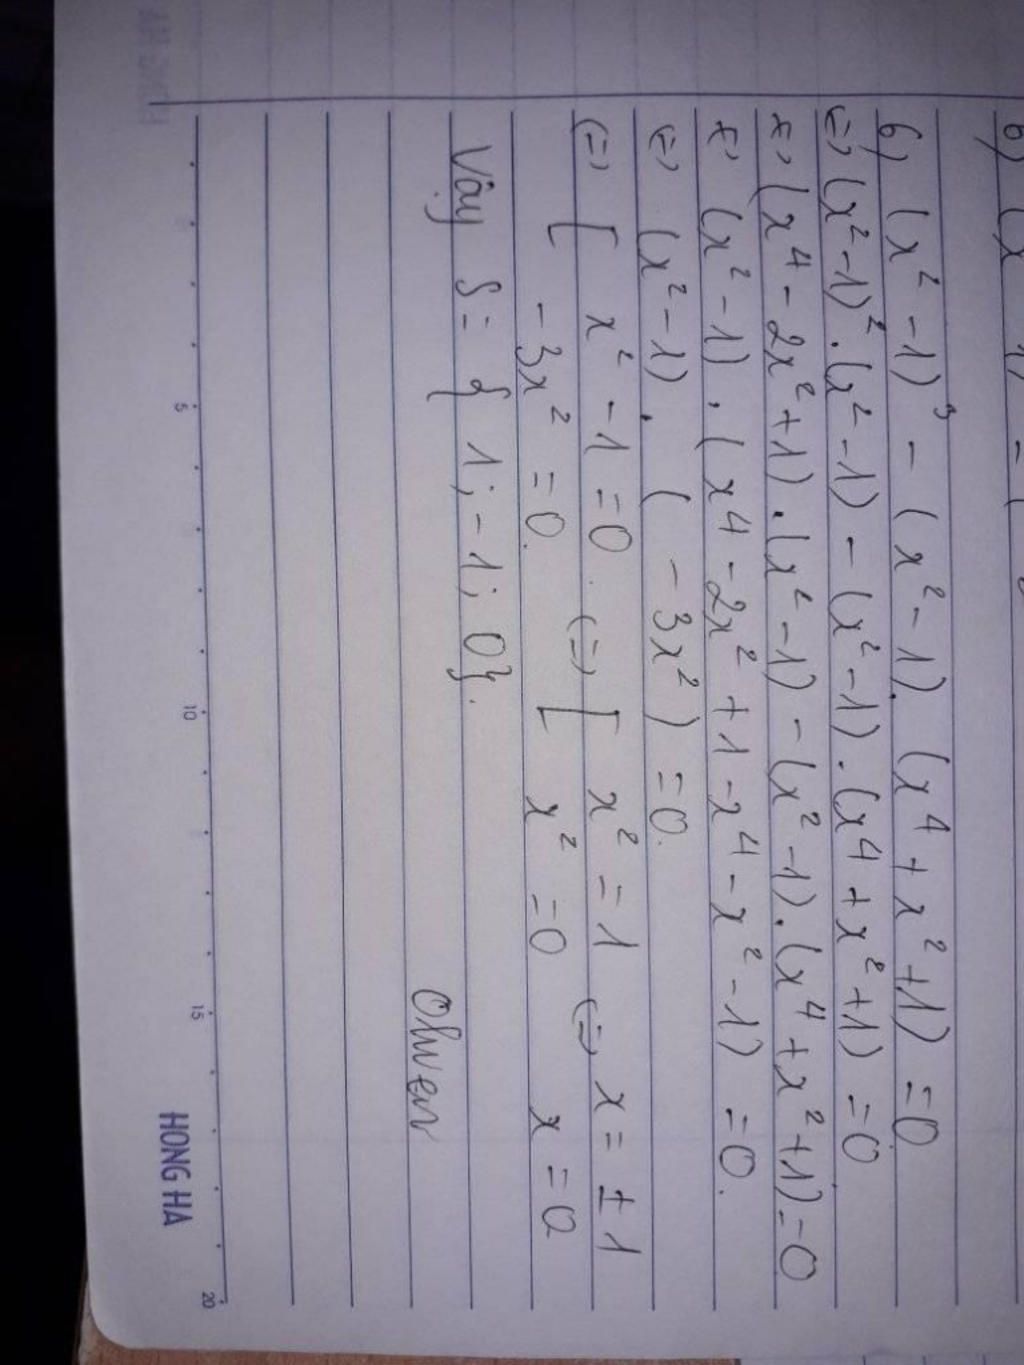 6) (x² - 1)³ - (x² - 1). (x⁴ + x² + 1) = 0
(=) (x² - 1)². (x² - 1) - (x² - 1). (x⁴ + x² + 1) = 0
(=) (x⁴ - 2x² + 1). (x² - 1) - (x² - 1). (x⁴ + x² + 1) = 0
(=) (x² - 1). (x⁴ - 2x² + 1 - x⁴ - x² - 1) = 0.
(=) (x² - 1). ( - 3x²) = 0.
(=) [ x² - 1 = 0. (=) [ x² = 1 (=) x = ± 1
- 3x² = 0. x² = 0 x = 0
Vậy S = { 1; - 1; 0}.
HONG HA
5 10 15 20